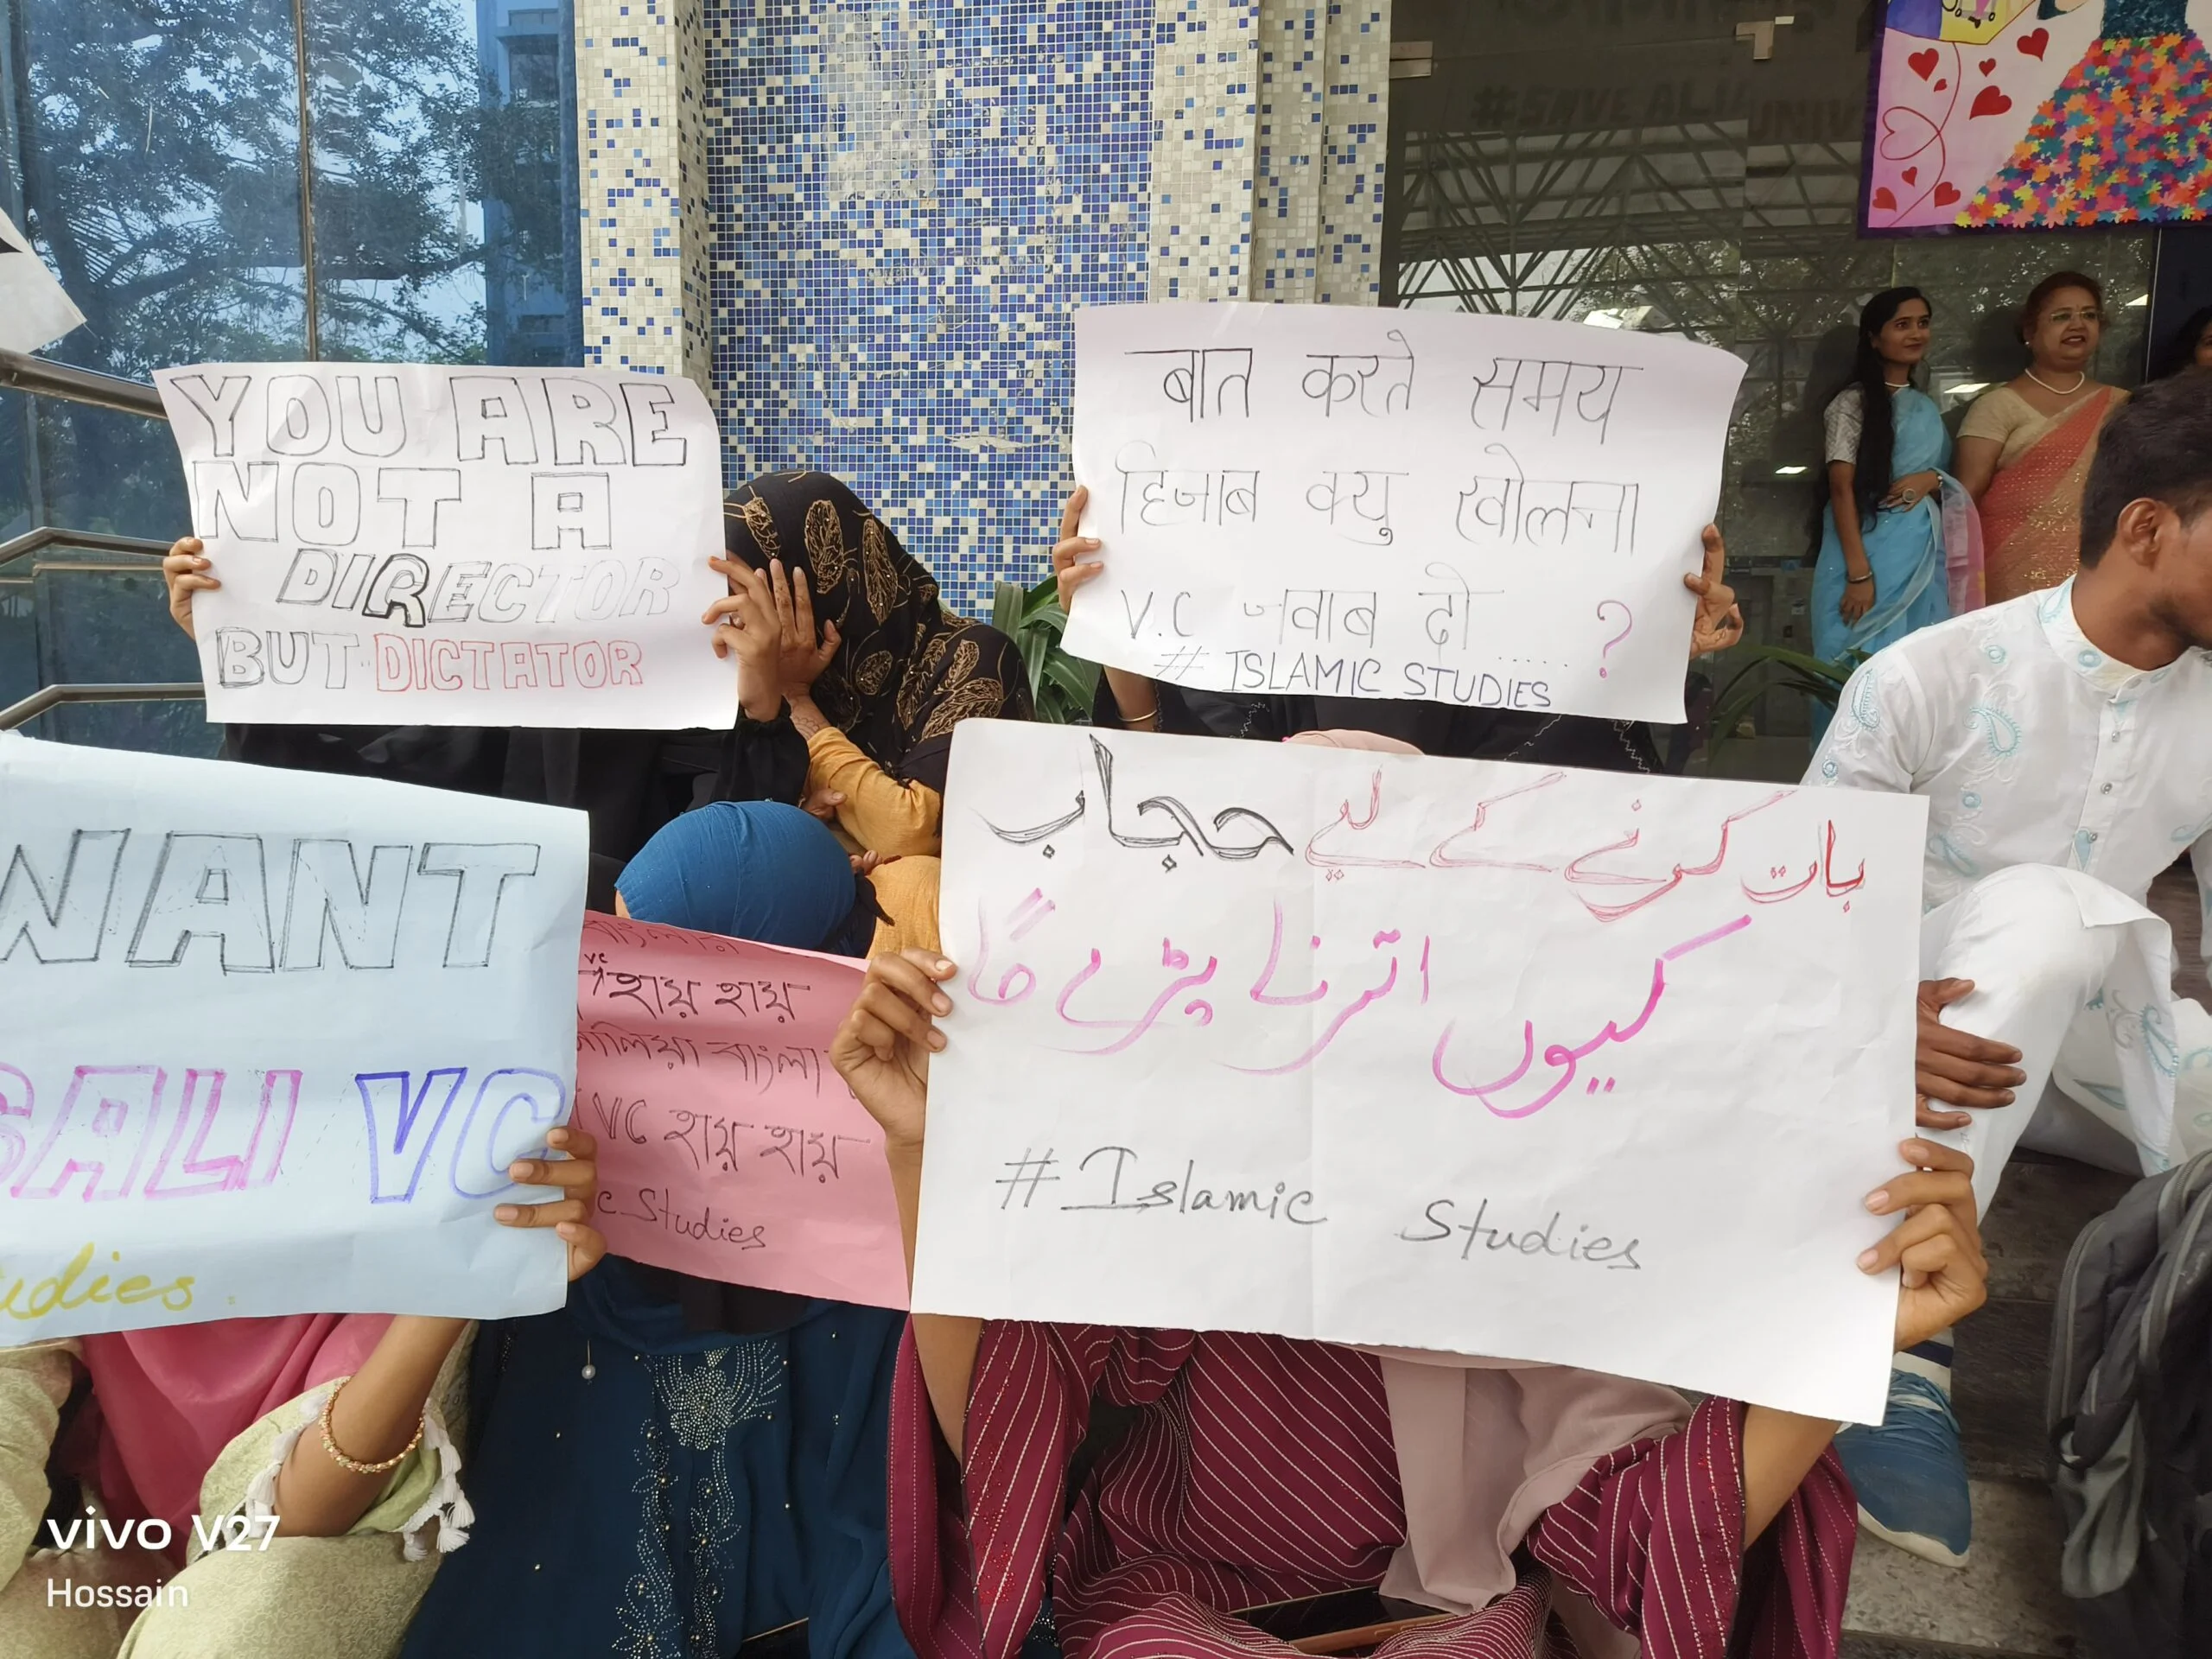 #SAVE ALI
UNIV
YOU ARE
NOT A
DIRECTOR
BUT DICTATOR
बात करते समय
हिजाब क्यु खोलना
V.C जवाब दो ..... ?
# ISLAMIC STUDIES
WANT
GALI VC
udies.
VC
হায় হায়
আলিয়া বাংলা
VC হায় হায়
c Studies
بات کرنے کے لیے حجاب
کیوں اترنا پڑے گا
# Islamic Studies
vivo V27
Hossain